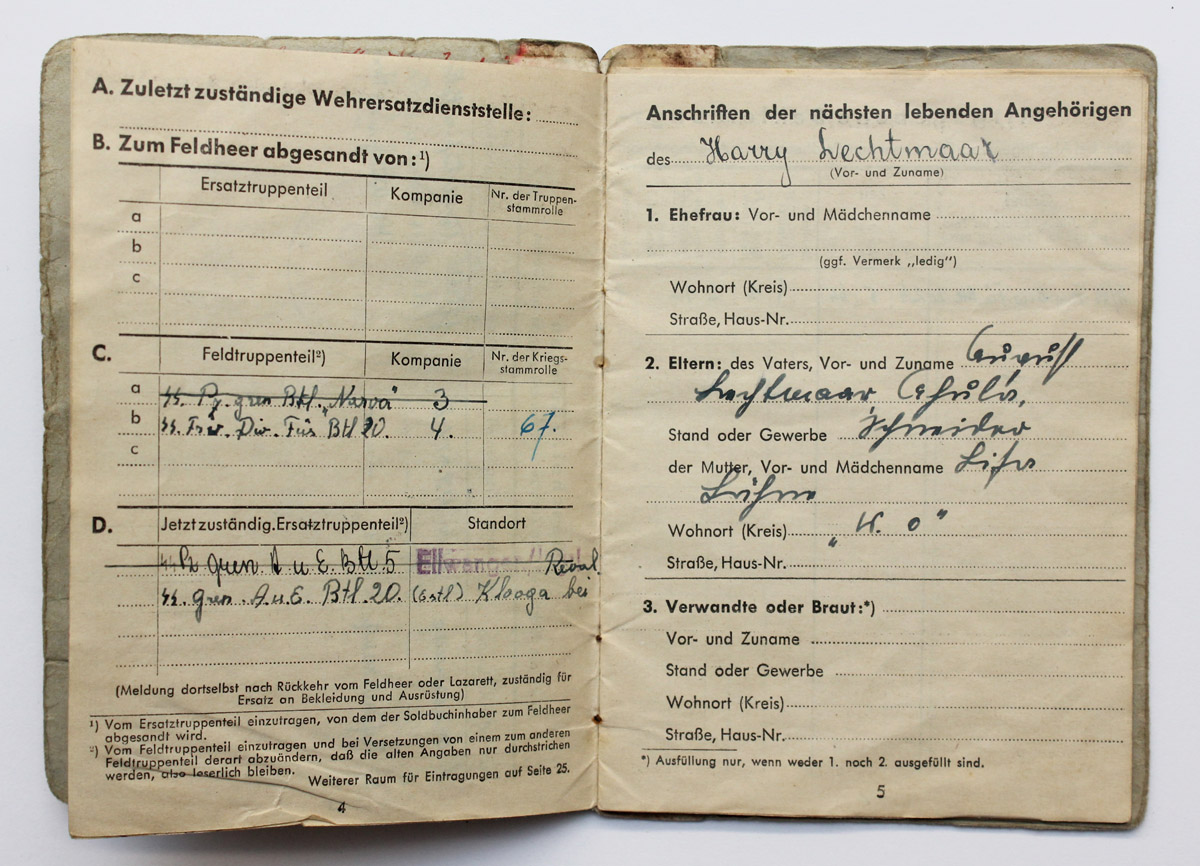 A. Zuletzt zuständige Wehrersatzdienststelle:
B. Zum Feldheer abgesandt von:¹)
Ersatztruppenteil Kompanie Nr. der Truppen-
stammrolle
a
b
c
C. Feldtruppenteil²) Kompanie Nr. der Kriegs-
stammrolle
a ᛋᛋ. Pz. gren Btl. „Narva" 3
b ᛋᛋ. Frw. Div. Füs Btl 20. 4. 67.
c
D. Jetzt zuständig. Ersatztruppenteil²) Standort
gren. A u E. Btl 5 Ellwangen Reval
ᛋᛋ. gren. A.u.E. Btl. 20. (Estl) Klooga bei
(Meldung dortselbst nach Rückkehr vom Feldheer oder Lazarett, zuständig für
Ersatz an Bekleidung und Ausrüstung)
¹) Vom Ersatztruppenteil einzutragen, von dem der Soldbuchinhaber zum Feldheer
abgesandt wird.
²) Vom Feldtruppenteil einzutragen und bei Versetzungen von einem zum anderen
Feldtruppenteil derart abzuändern, daß die alten Angaben nur durchstrichen
werden, also leserlich bleiben.
Weiterer Raum für Eintragungen auf Seite 25.
4
Anschriften der nächsten lebenden Angehörigen
des Harry Lechtmaar
(Vor- und Zuname)
1. Ehefrau: Vor- und Mädchenname
(ggf. Vermerk „ledig")
Wohnort (Kreis)
Straße, Haus-Nr.
2. Eltern: des Vaters, Vor- und Zuname August
Lechtmaar
Stand oder Gewerbe Schneider
der Mutter, Vor- und Mädchenname Lisa
Wohnort (Kreis)
Straße, Haus-Nr.
3. Verwandte oder Braut:*)
Vor- und Zuname
Stand oder Gewerbe
Wohnort (Kreis)
Straße, Haus-Nr.
*) Ausfüllung nur, wenn weder 1. noch 2. ausgefüllt sind.
5